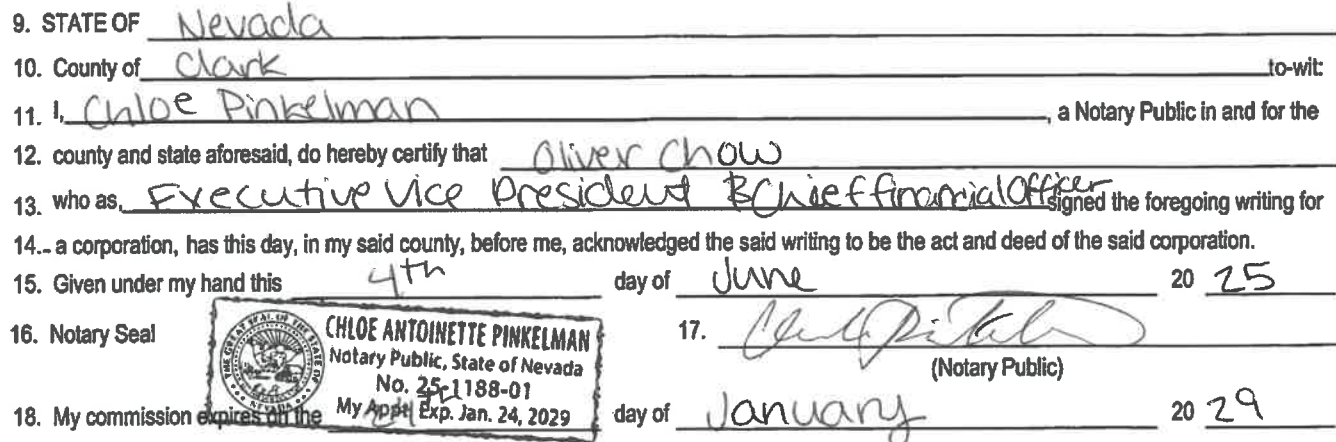 9. STATE OF Nevada
10. County of Clark to-wit:
11. I, Chloe Pinkelman, a Notary Public in and for the
12. county and state aforesaid, do hereby certify that Oliver Chow
13. who as, Executive Vice President & Chief financial Officer signed the foregoing writing for
14. a corporation, has this day, in my said county, before me, acknowledged the said writing to be the act and deed of the said corporation.
15. Given under my hand this 4th day of June 20 25
16. Notary Seal
THE GREAT SEAL OF THE STATE OF NEVADA
CHLOE ANTOINETTE PINKELMAN
Notary Public, State of Nevada
No. 25-1188-01
My Appt. Exp. Jan. 24, 2029
17.
(Notary Public)
18. My commission expires on the day of January 20 29